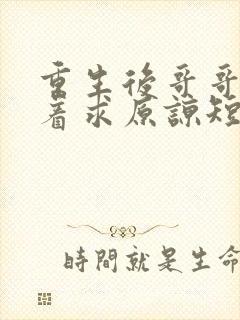 重生後哥哥
着求原諒短
時間就是生命